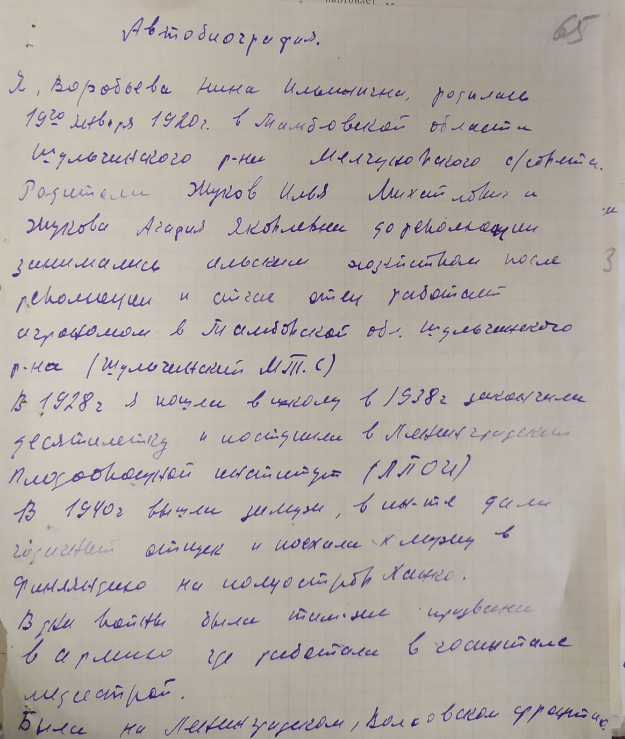 65
Автобиография.
Я, Воробьева Нина Ильинична, родилась
19го января 1920г. в Тамбовской области
Шульгинского р-на Мелгуновского с/совета.
Родители Жуков Илья Михайлович и
Жукова Агафия Яковлевна до революции
занимались сельским хозяйством после
революции и сейчас отец работает
агрономом в Тамбовской обл. Шульгинского
р-на (Шульгинский М.Т.С)
В 1928г я пошла в школу в 1938г закончила
десятилетку и поступила в Ленинградский
Плодоовощной институт (ЛПОИ)
В 1940г вышла замуж, в ин-те дали
годичный отпуск и поехала к мужу в
Финляндию на полуостров Ханко.
В дни войны была там же призвана
в армию где работала в госпитале
медсестрой.
Была на Ленинградском, Волховском фронтах.
3